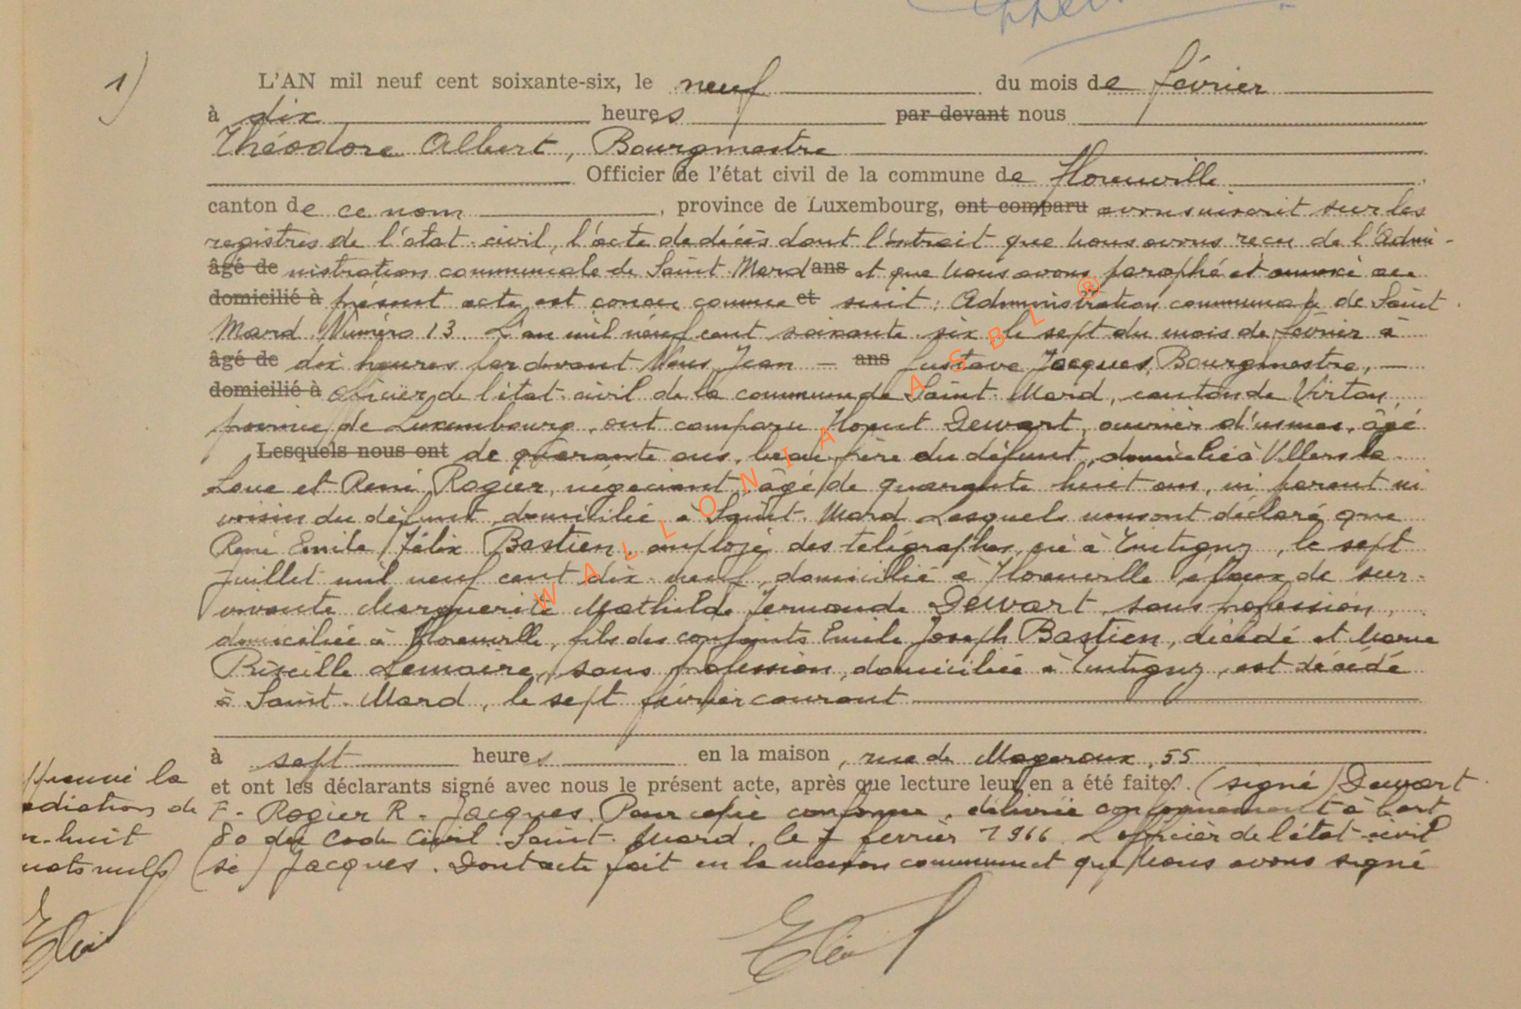 1)
L'AN mil neuf cent soixante-six, le neuf du mois de février
à dix heures par devant nous
Théodore Albert, Bourgmestre
Officier de l'état civil de la commune de Florenville
canton de ce nom, province de Luxembourg, ont comparu avons inscrit sur les
registres de l'état civil, l'acte de décès dont l'extrait que nous avons reçu de l'Admi-
âgé de nistration communale de Saint-Mard ans et que nous avons paraphé et annexé au
domicilié à présent acte est conçu comme et suit : Administration communale de Saint
Mard Numéro 13. L'an mil neuf cent soixante six le sept du mois de février à
âgé de dix heures par devant Nous Jean - ans Gustave Jacques, Bourgmestre, -
domicilié à officier de l'état-civil de la commune de Saint-Mard, canton de Virton,
province de Luxembourg, ont comparu Dewart, ouvrier d'usines, âgé
Lesquels nous ont de quarante ans, beau-frère du défunt, domicilié à Villers la
Loue et René Rogier, négociant, âgé de quarante huit ans, ni parent ni
voisin du défunt domicilié à Saint-Mard Lesquels nous ont déclaré que
René Emile Félix Bastien, employé des télégraphes, né à Tintigny, le sept
juillet mil neuf cent dix-neuf, domicilié à Florenville, époux de sur-
vivante Marguerite Mathilde Fernande Dewart, sans profession,
domiciliée à Florenville, fils des conjoints Emile Joseph Bastien, décédé et Marie
Lemaire, sans profession, domiciliée à Tintigny, est décédé
à Saint-Mard, le sept février courant
à sept heures en la maison, rue de Mageroux, 55
et ont les déclarants signé avec nous le présent acte, après que lecture leur en a été faite. (signé) Dewart
F. - Rogier R. - Jacques. Pour copie conforme, délivrée conformément à l'art
80 du Code Civil Saint-Mard, le 7 février 1966 L'officier de l'état-civil
(sé) Jacques. Dont acte fait en la maison commune et que nous avons signé
la
de
n-huit
mots nuls
WALLONIA ASBL ®